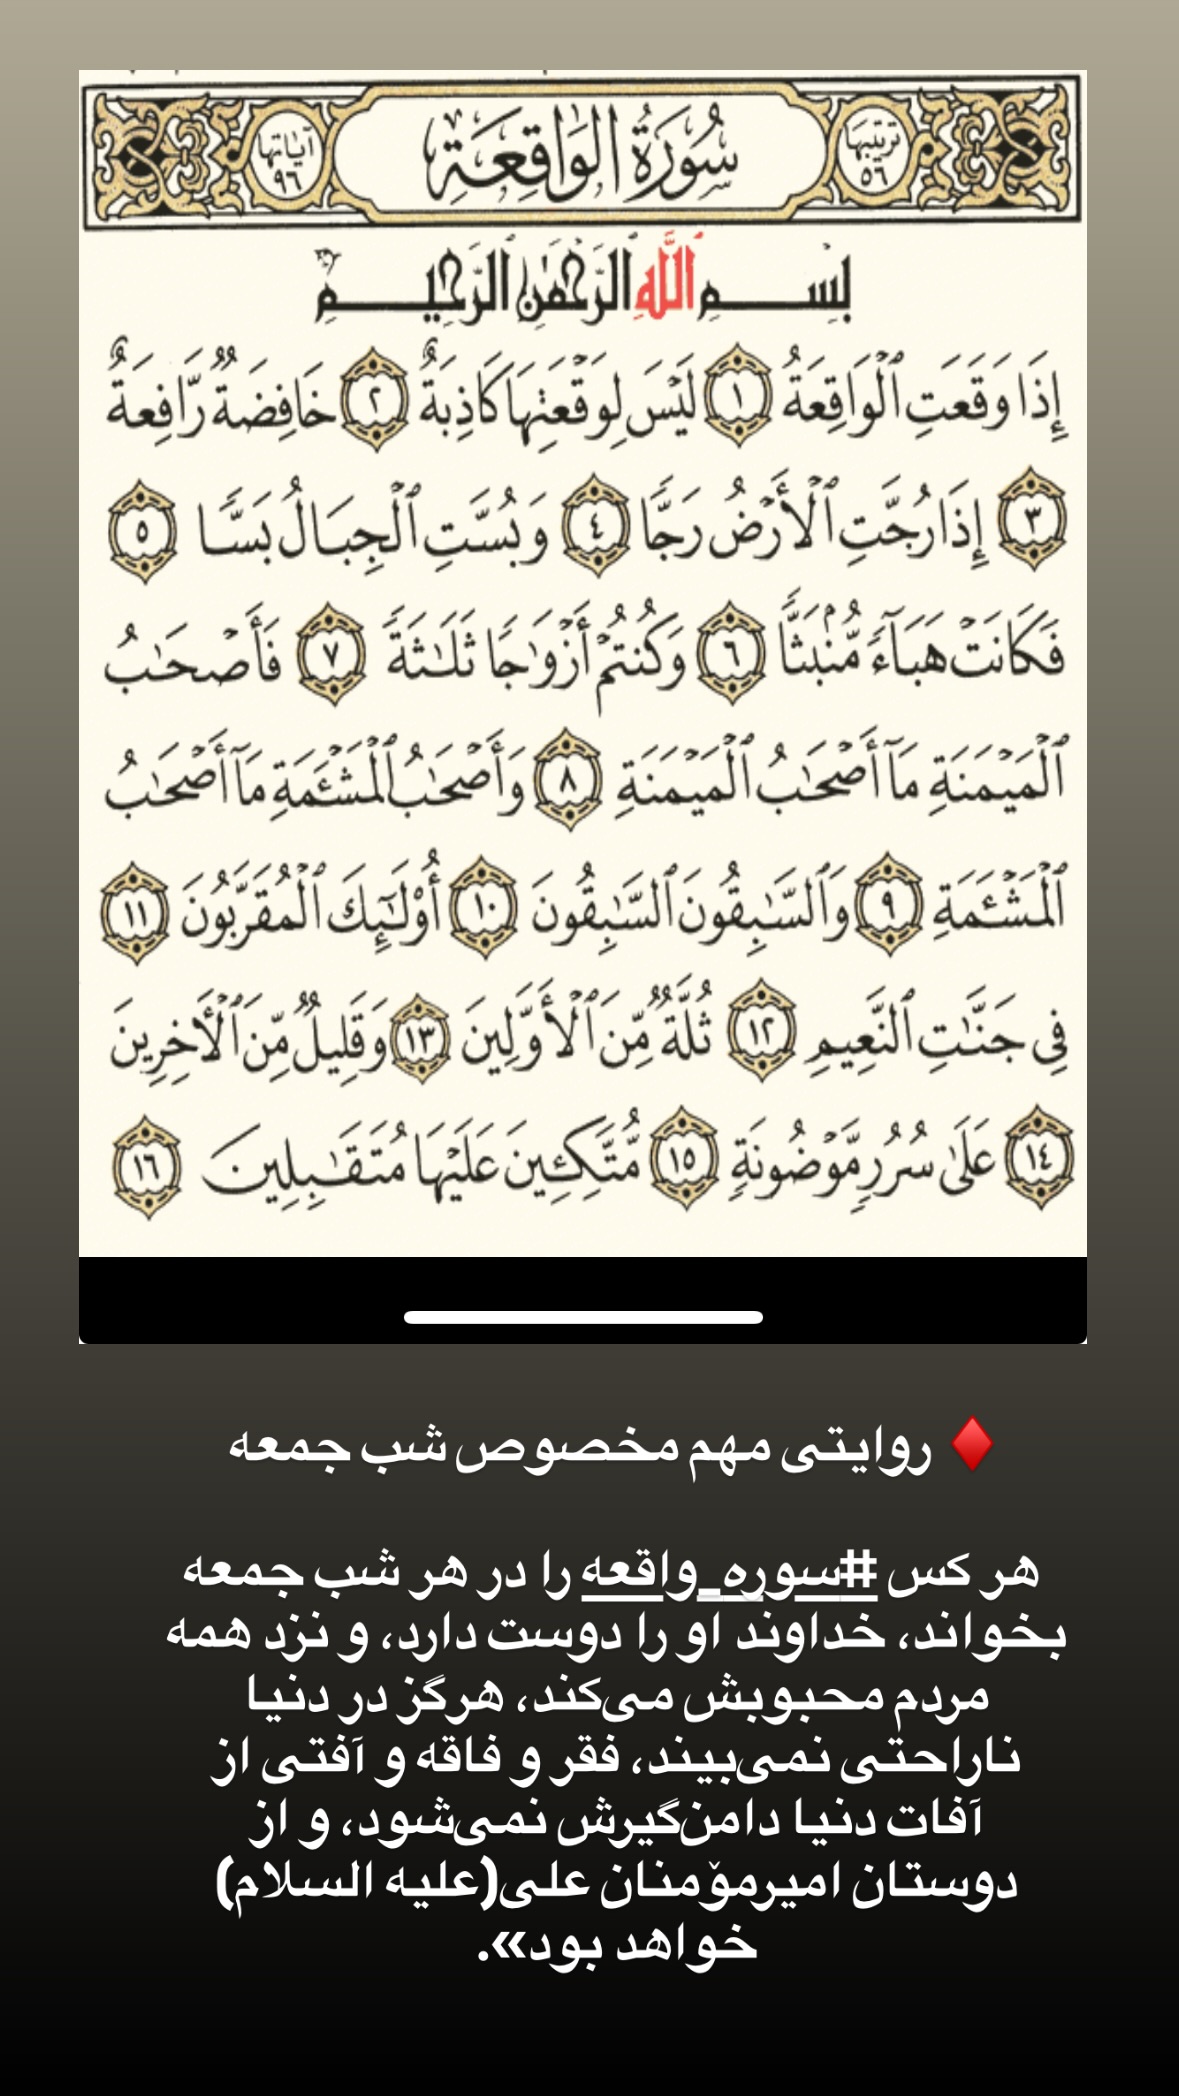 ترتيبها ٥٦ سُورَةُ الوَاقِعَةِ آياتها ٩٦
بِسْمِ اللَّهِ الرَّحْمَٰنِ الرَّحِيمِ
إِذَا وَقَعَتِ ٱلْوَاقِعَةُ ١ لَيْسَ لِوَقْعَتِهَا كَاذِبَةٌ ٢ خَافِضَةٌ رَّافِعَةٌ
٣ إِذَا رُجَّتِ ٱلْأَرْضُ رَجًّا ٤ وَبُسَّتِ ٱلْجِبَالُ بَسًّا ٥
فَكَانَتْ هَبَآءً مُّنۢبَثًّا ٦ وَكُنتُمْ أَزْوَٰجًا ثَلَٰثَةً ٧ فَأَصْحَٰبُ
ٱلْمَيْمَنَةِ مَآ أَصْحَٰبُ ٱلْمَيْمَنَةِ ٨ وَأَصْحَٰبُ ٱلْمَشْـَٔمَةِ مَآ أَصْحَٰبُ
ٱلْمَشْـَٔمَةِ ٩ وَٱلسَّٰبِقُونَ ٱلسَّٰبِقُونَ ١٠ أُو۟لَٰٓئِكَ ٱلْمُقَرَّبُونَ ١١
فِى جَنَّٰتِ ٱلنَّعِيمِ ١٢ ثُلَّةٌ مِّنَ ٱلْأَوَّلِينَ ١٣ وَقَلِيلٌ مِّنَ ٱلْأَخِرِينَ
١٤ عَلَىٰ سُرُرٍ مَّوْضُونَةٍ ١٥ مُّتَّكِـِٔينَ عَلَيْهَا مُتَقَٰبِلِينَ ١٦
♦️ روایتی مهم مخصوص شب جمعه
هر کس #سوره_واقعه را در هر شب جمعه
بخواند، خداوند او را دوست دارد، و نزد همه
مردم محبوبش می‌کند، هرگز در دنیا
ناراحتی نمی‌بیند، فقر و فاقه و آفتی از
آفات دنیا دامن‌گیرش نمی‌شود، و از
دوستان امیرمؤمنان علی(علیه السلام)
خواهد بود».